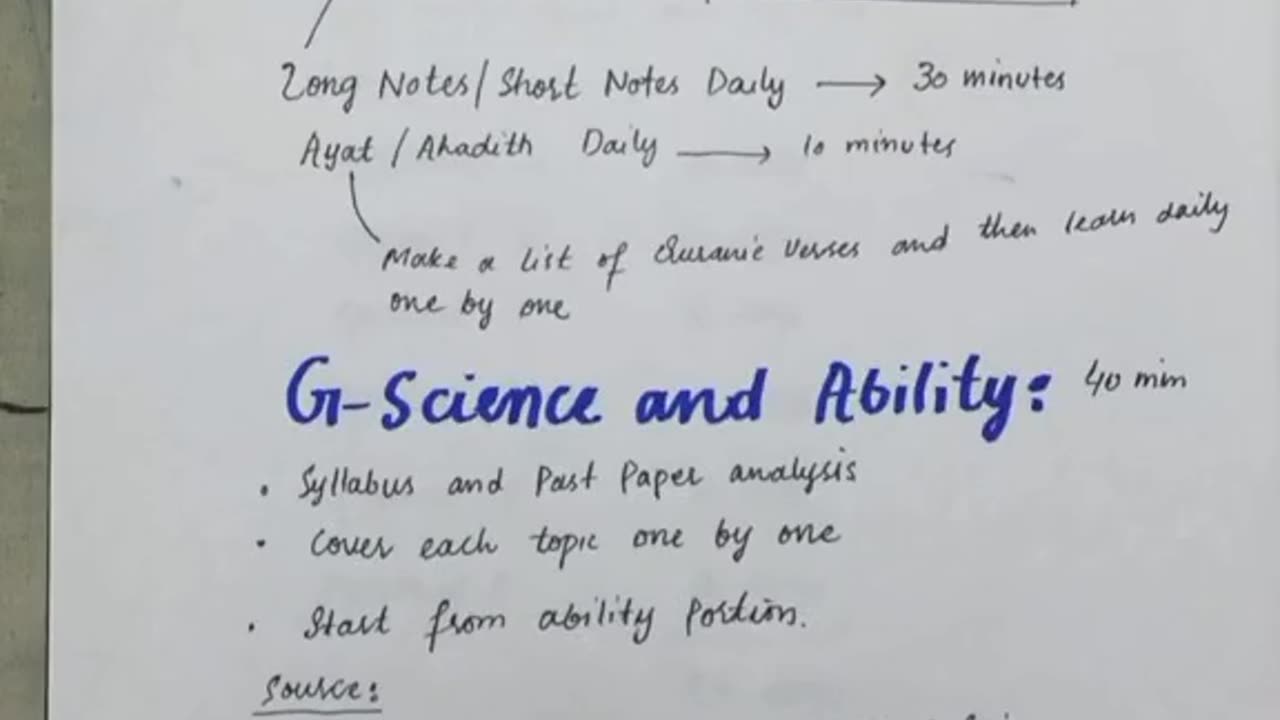 Long Notes/Short Notes Daily → 30 minutes
Ayat / Ahadith Daily → 10 minutes
Make a list of Quranic Verses and then learn daily
one by one
G-Science and Ability: 40 min
• Syllabus and Past Paper analysis
• Cover each topic one by one
• Start from ability Portion.
Source: